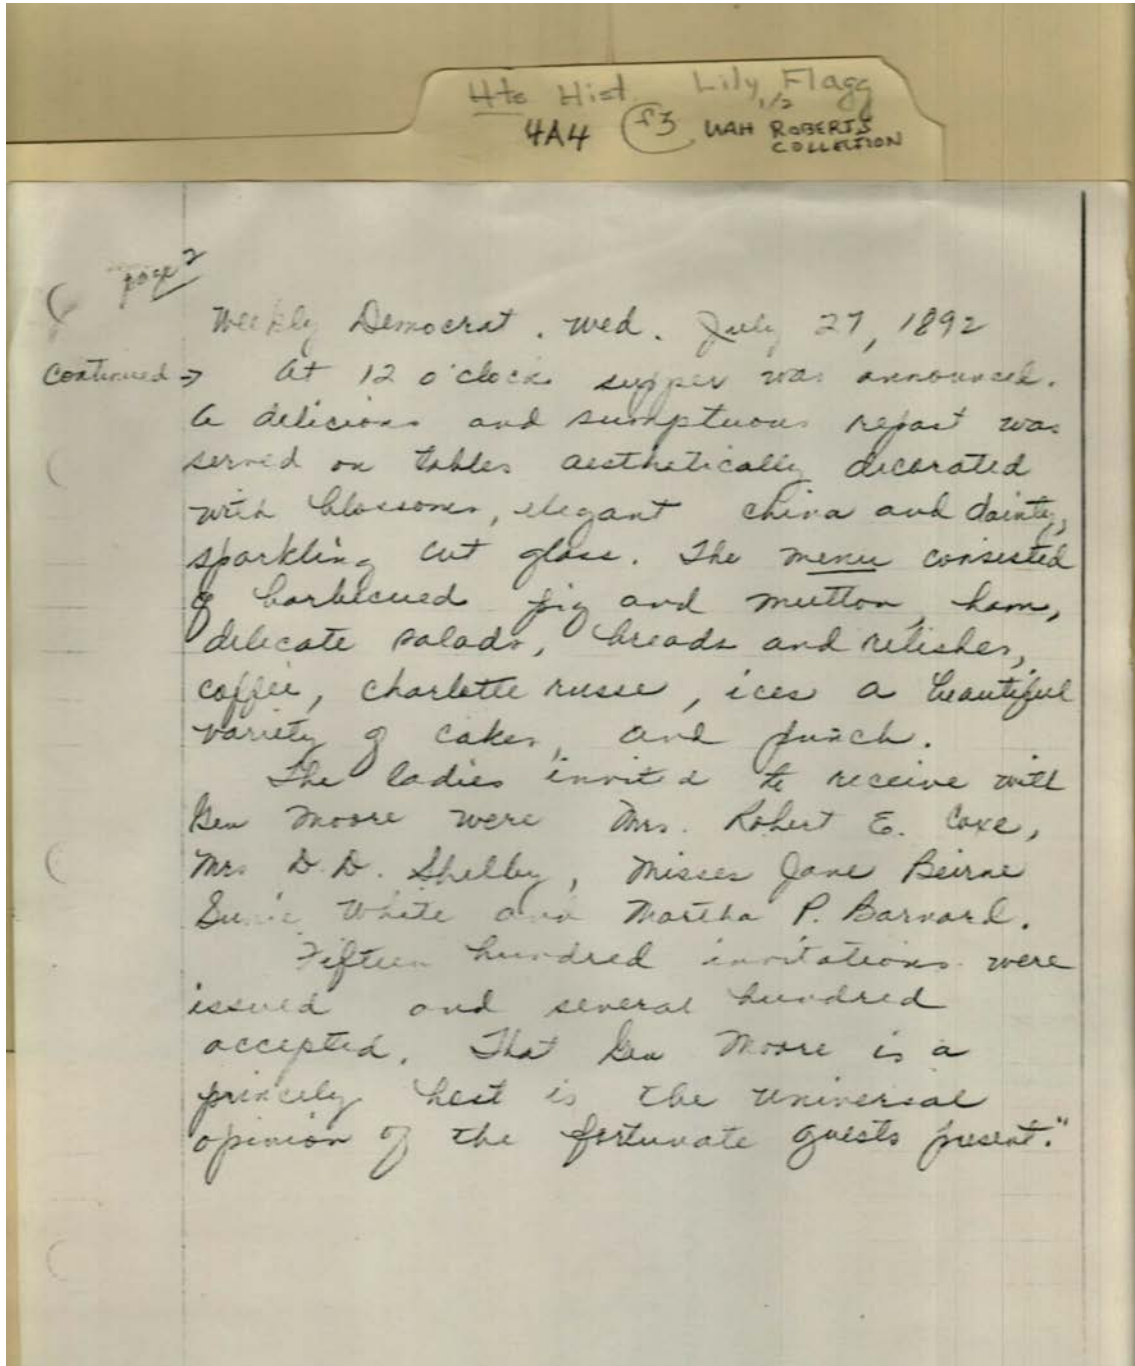 Hts Hist. Lily Flagg
1/2
4A4 f3 UAH ROBERTS
COLLECTION
page 2
Weekly Democrat. Wed. July 27, 1892
Continued → At 12 o'clock supper was announced.
A delicious and sumptuous repast was
served on tables aesthetically decorated
with blossoms, elegant china and dainty,
sparkling cut glass. The menu consisted
of barbecued pig and mutton, ham,
delicate salads, breads and relishes,
coffee, charlotte russe, ices a beautiful
variety of cakes, and punch.
The ladies invited to receive with
Gen Moore were Mrs. Robert E. Coxe,
Mrs D.D. Shelby, Misses Jane Beirne
Susie White and Martha P. Barnard.
Fifteen hundred invitations were
issued and several hundred
accepted. That Gen Moore is a
princely host is the universal
opinion of the fortunate guests present."